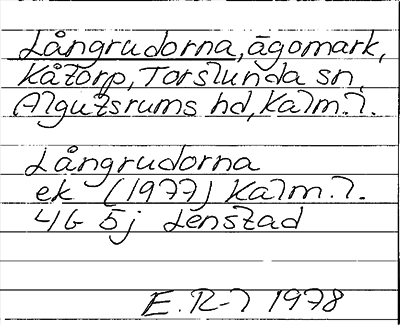 Långrudorna, ägomark,
Kåtorp, Torslunda sn,
Algutsrums hd, Kalm.l.
Långrudorna
ek (1977) Kalm.l.
4G 5j Lenstad
E.R-l 1978